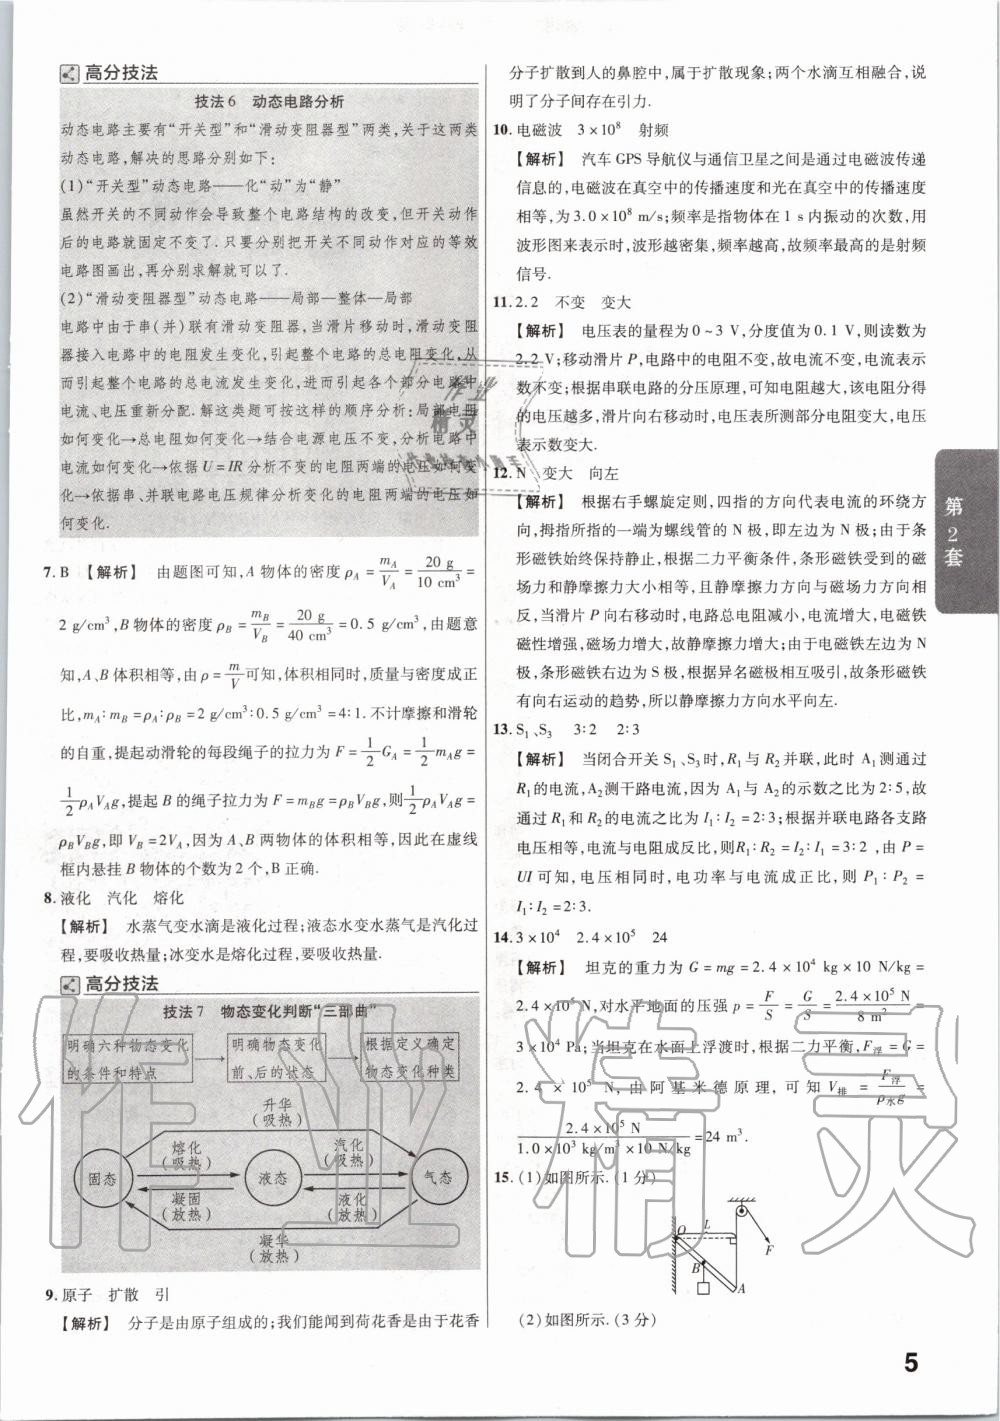 高分技法
技法6 动态电路分析
动态电路主要有“开关型”和“滑动变阻器型”两类,关于这两类
动态电路,解决的思路分别如下:
(1)“开关型”动态电路——化“动”为“静”
虽然开关的不同动作会导致整个电路结构的改变,但开关动作
后的电路就固定不变了.只要分别把开关不同动作对应的等效
电路图画出,再分别求解就可以了.
(2)“滑动变阻器型”动态电路——局部—整体—局部
电路中由于串(并)联有滑动变阻器,当滑片移动时,滑动变阻
器接入电路中的电阻发生变化,引起整个电路的总电阻变化,从
而引起整个电路的总电流发生变化,进而引起各个部分电路中
电流、电压重新分配.解这类题可按这样的顺序分析:局部电阻
如何变化→总电阻如何变化→结合电源电压不变,分析电路中
电流如何变化→依据U=IR分析不变的电阻两端的电压如何变
化→依据串、并联电路电压规律分析变化的电阻两端的电压如
何变化.
7. B 【解析】 由题图可知,A物体的密度ρA = mA/VA = 20 g/10 cm³ =
2 g/cm³,B物体的密度ρB = mB/VB = 20 g/40 cm³ = 0.5 g/cm³,由题意
知,A、B体积相等,由ρ = m/V可知,体积相同时,质量与密度成正
比,mA∶mB = ρA∶ρB = 2 g/cm³∶0.5 g/cm³ = 4∶1.不计摩擦和滑轮
的自重,提起动滑轮的每段绳子的拉力为F = 1/2 GA = 1/2 mAg =
1/2 ρAVAg,提起B的绳子拉力为F = mBg = ρBVBg,则1/2 ρAVAg =
ρBVBg,即VB = 2VA,因为A、B两物体的体积相等,因此在虚线
框内悬挂B物体的个数为2个,B正确.
8. 液化 汽化 熔化
【解析】 水蒸气变水滴是液化过程;液态水变水蒸气是汽化过
程,要吸收热量;冰变水是熔化过程,要吸收热量.
高分技法
技法7 物态变化判断“三部曲”
明确六种物态变化
的条件和特点
明确物态变化
前、后的状态
根据定义确定
物态变化种类
升华
(吸热)
熔化
(吸热)
汽化
(吸热)
固态
液态
气态
凝固
(放热)
液化
(放热)
凝华
(放热)
9. 原子 扩散 引
【解析】 分子是由原子组成的;我们能闻到荷花香是由于花香
分子扩散到人的鼻腔中,属于扩散现象;两个水滴互相融合,说
明了分子间存在引力.
10. 电磁波 3×10⁸ 射频
【解析】 汽车GPS导航仪与通信卫星之间是通过电磁波传递
信息的,电磁波在真空中的传播速度和光在真空中的传播速度
相等,为3.0×10⁸ m/s;频率是指物体在1 s内振动的次数,用
波形图来表示时,波形越密集,频率越高,故频率最高的是射频
信号.
11. 2.2 不变 变大
【解析】 电压表的量程为0~3 V,分度值为0.1 V,则读数为
2.2 V;移动滑片P,电路中的电阻不变,故电流不变,电流表示
数不变;根据串联电路的分压原理,可知电阻越大,该电阻分得
的电压越多,滑片向右移动时,电压表所测部分电阻变大,电压
表示数变大.
12. N 变大 向左
【解析】 根据右手螺旋定则,四指的方向代表电流的环绕方
向,拇指所指的一端为螺线管的N极,即左边为N极;由于条
形磁铁始终保持静止,根据二力平衡条件,条形磁铁受到的磁
场力和静摩擦力大小相等,且静摩擦力方向与磁场力方向相
反,当滑片P向右移动时,电路总电阻减小,电流增大,电磁铁
磁性增强,磁场力增大,故静摩擦力增大;由于电磁铁左边为N
极,条形磁铁右边为S极,根据异名磁极相互吸引,故条形磁铁
有向右运动的趋势,所以静摩擦力方向水平向左.
13. S₁、S₃ 3∶2 2∶3
【解析】 当闭合开关S₁、S₃时,R₁与R₂并联,此时A₁测通过
R₁的电流,A₂测干路电流,因为A₁与A₂的示数之比为2∶5,故
通过R₁和R₂的电流之比为I₁∶I₂=2∶3;根据并联电路各支路
电压相等,电流与电阻成反比,则R₁∶R₂=I₂∶I₁=3∶2,由P=
UI可知,电压相同时,电功率与电流成正比,则P₁∶P₂=
I₁∶I₂=2∶3.
14. 3×10⁴ 2.4×10⁵ 24
【解析】 坦克的重力为G=mg=2.4×10⁴ kg×10 N/kg=
2.4×10⁵ N,对水平地面的压强p = F/S = G/S = 2.4×10⁵ N/8 m² =
3×10⁴ Pa;当坦克在水面上浮渡时,根据二力平衡,F浮=G=
2.4×10⁵ N,由阿基米德原理,可知V排 = F浮/ρ水g =
2.4×10⁵ N/1.0×10³ kg/m³×10 N/kg = 24 m³.
15. (1)如图所示.(1分)
O
L
F
B
A
(2)如图所示.(3分)
第2套
5
作业精灵
作业
精灵